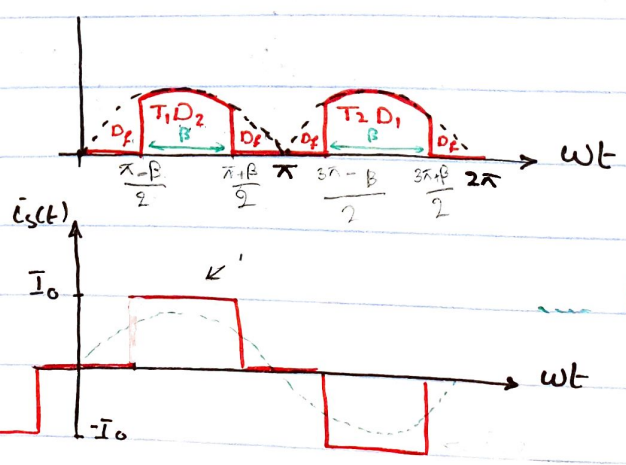 Df T₁D₂ Df Df T₂D₁ Df
β β
π-β/2 π+β/2 π 3π-β/2 3π+β/2 2π ωt
is(t)
I₀
ωt
-I₀